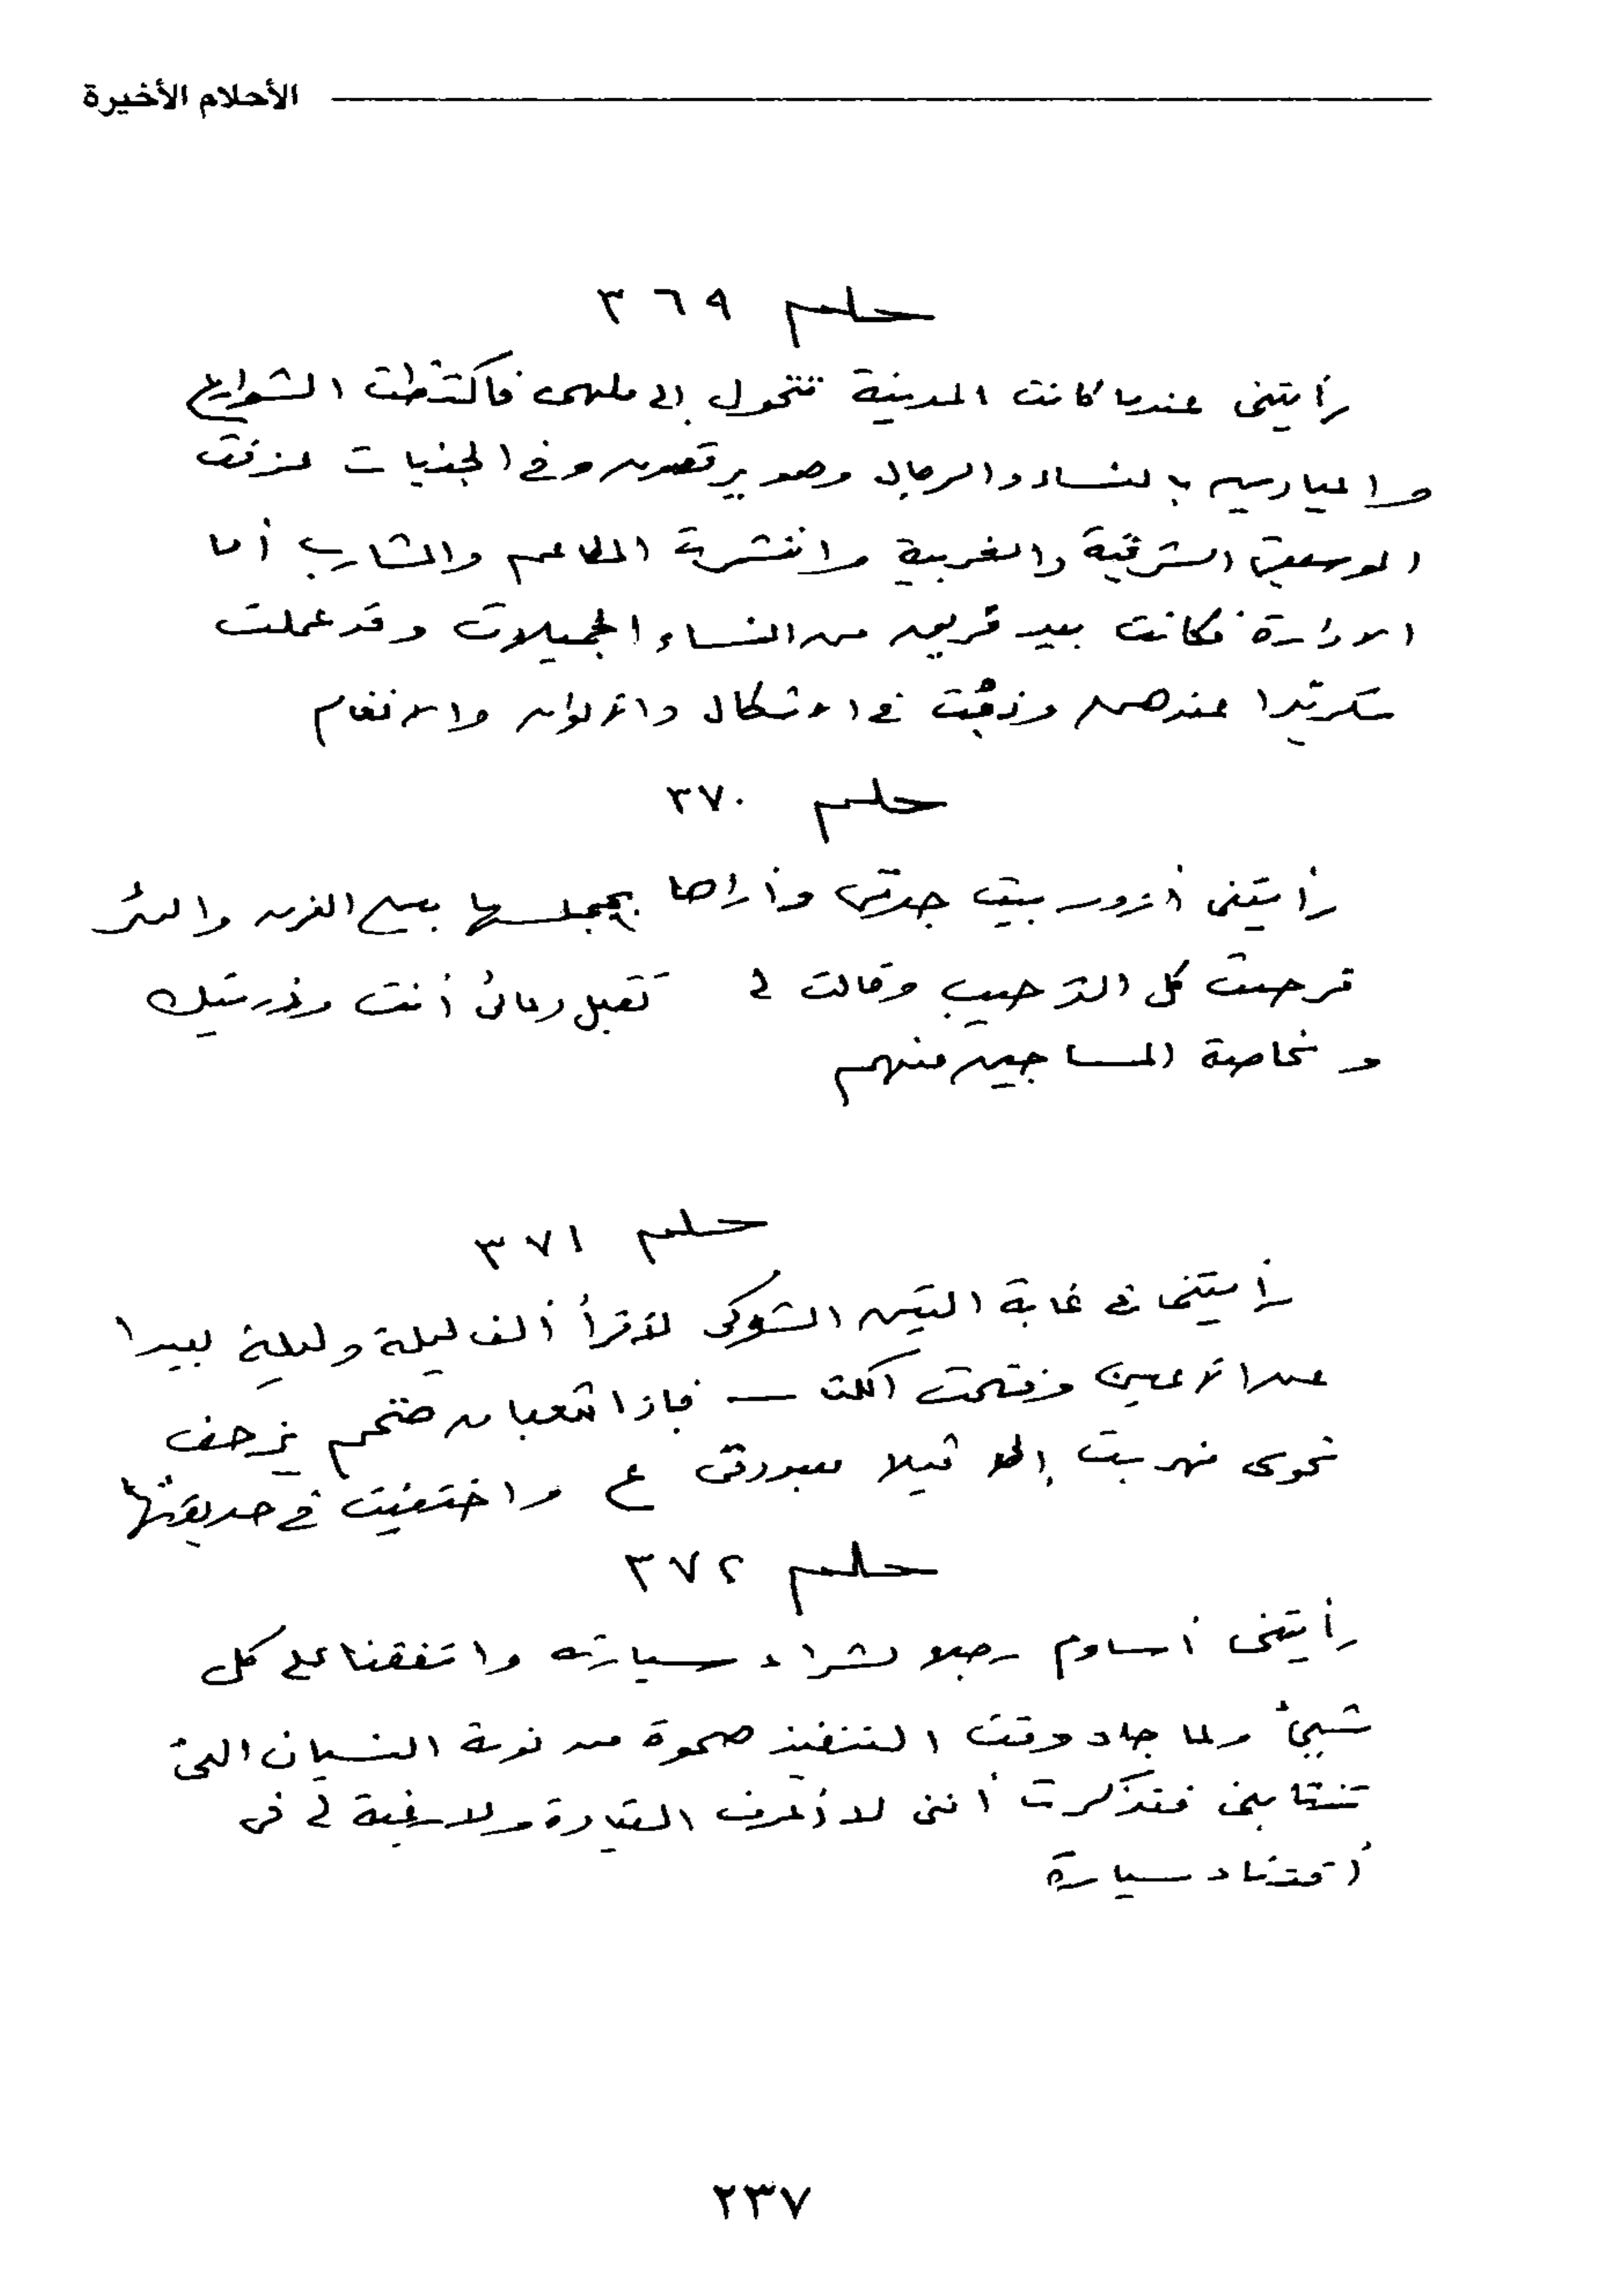 الأحلام الأخيرة
حلم ٣٦٩
رأيتنى عندما كانت المدينة تتحول إلى ملهى فاكتظت الشوارع
والميادين بالنساء والرجال وهم يرقصون وفى الجنبات عزفت
الموسيقى الشرقية والغربية وانتشرت المطاعم والمشارب أما
الادارة فكانت بيد فريق من النساء الجميلات وقد عملت
سكرتيرا عندهن وذبت فى الاشكال والألوان والانغام
حلم ٣٧٠
رأيتنى أزور بيت جدتى وأراها بمجلسها بين الفرن والبئر
فرحبت كل الترحيب وقالت لى تقبل دعائى أنت وذريتك
وخاصة المساجين منهم
حلم ٣٧١
رأيتنى فى غابة التين الشوكى لأقرأ ألف ليلة وليلة بعيدا
عن الأعين وفتحت — فإذا ثعبان ضخم يزحف
نحوى فهربت إلى ثيلا ع واختفيت فى حديقتها
حلم ٣٧٢
رأيتنى أساوم رجلا لشراء سيارته واتفقنا على كل
شيئ ولما جاء وقت التنفيذ صحوة من نوبة النسيان التى
تنتابنى فتذكرت أننى لا أعرف القيادة ولا رغبة لى فى
أقتناء سيارة
٢٣٧